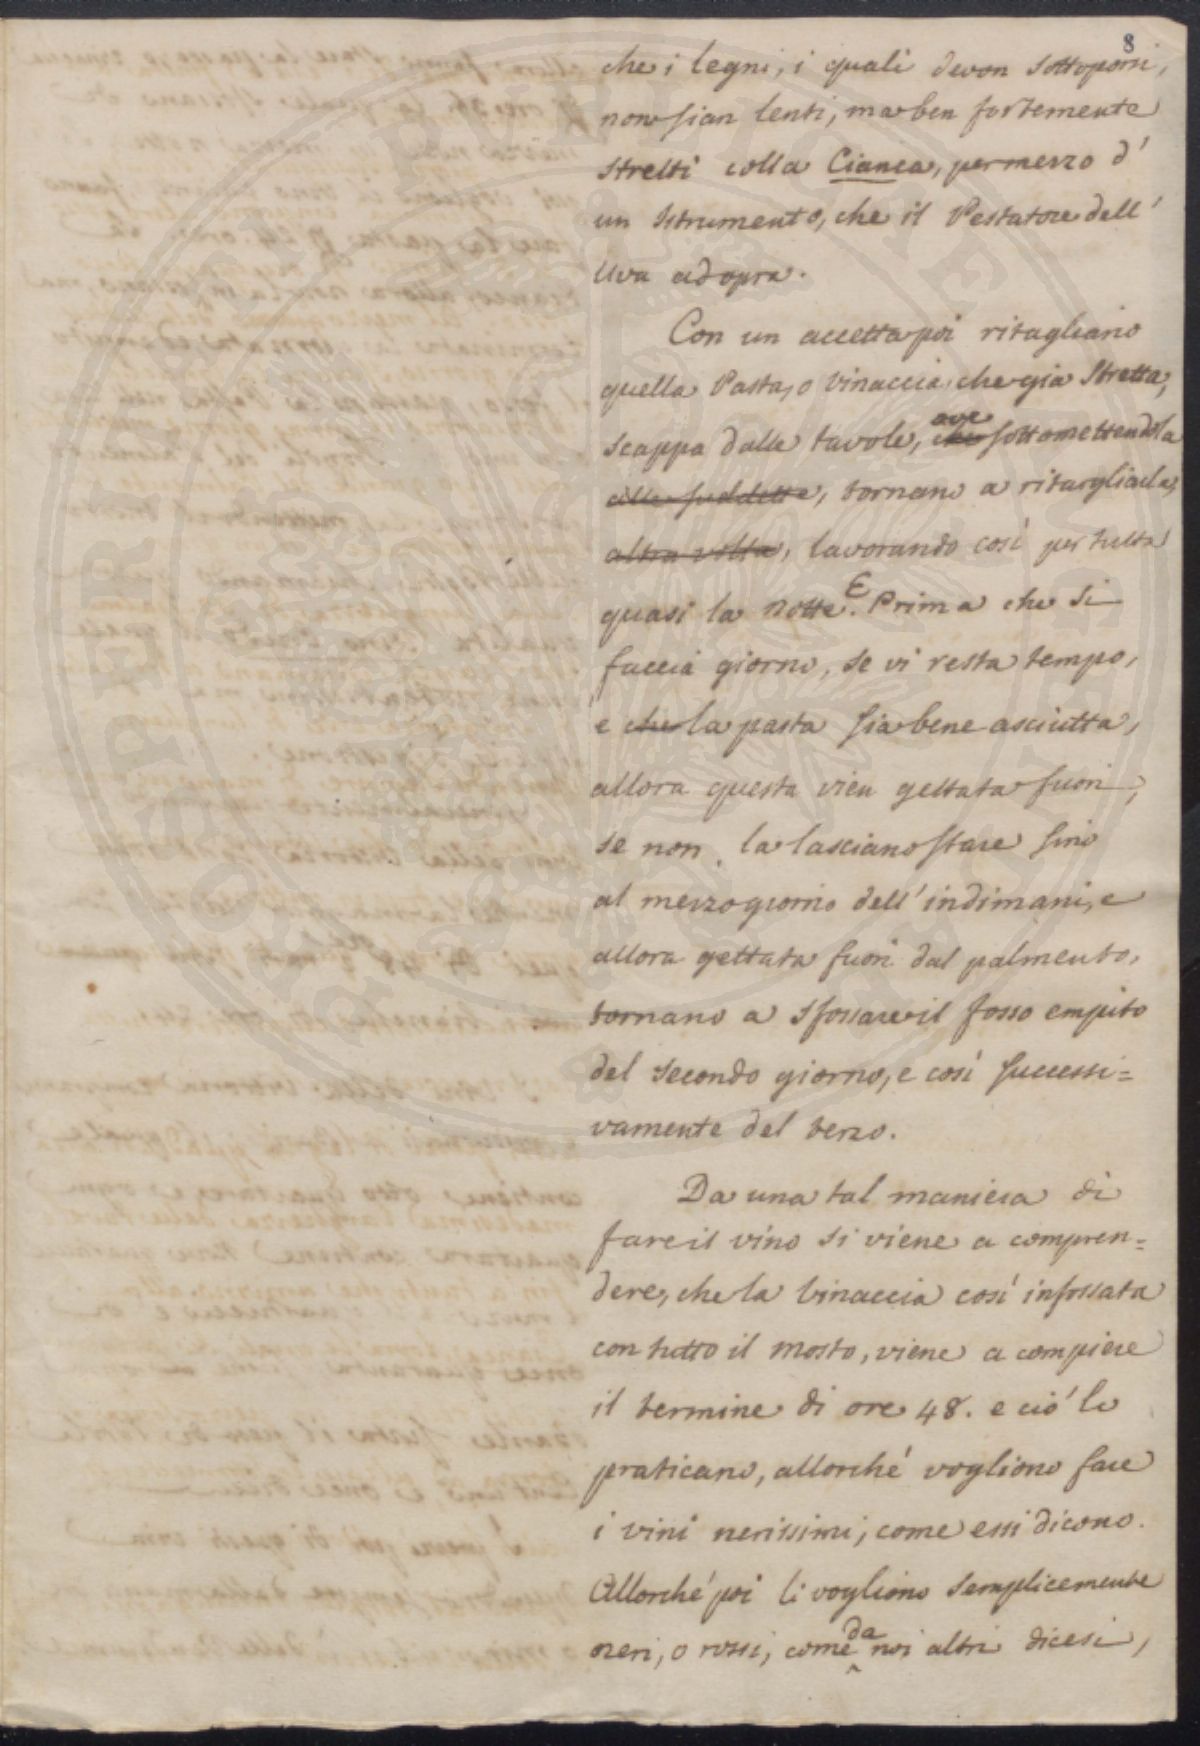 8
che i legni, i quali devon sottoporsi,
non sian lenti, ma ben fortemente
stretti colla Cianca, per mezzo d'
un Istrumento, che il Pestatore dell'
Uva adopra.
Con un accetta poi ritagliano
quella Pasta, o vinaccia, che già stretta,
scappa dalle tavole, ove che sottomettendola
alle suddette, tornano a ritagliarla,
altra volta, lavorando così per tutta
quasi la notte. E Prima che si
faccia giorno, se vi resta tempo,
e che la pasta sia bene asciutta,
allora questa vien gettata fuori,
se non, la lasciano stare sino
al mezzogiorno dell'indimani, e
allora gettata fuori dal palmento,
tornano a sfossare il fosso empito
del secondo giorno, e così successi=
vamente del terzo.
Da una tal maniera di
fare il vino si viene a compren=
dere, che la vinaccia così infossata
con tutto il mosto, viene a compiere
il termine di ore 48. e ciò lo
praticano, allorché vogliono fare
i vini nerissimi, come essi dicono.
Allorché poi li vogliono semplicemente
neri, o rossi, come da noi altri dicesi,
PROSPERITATI PUBLICAE AUGENDAE